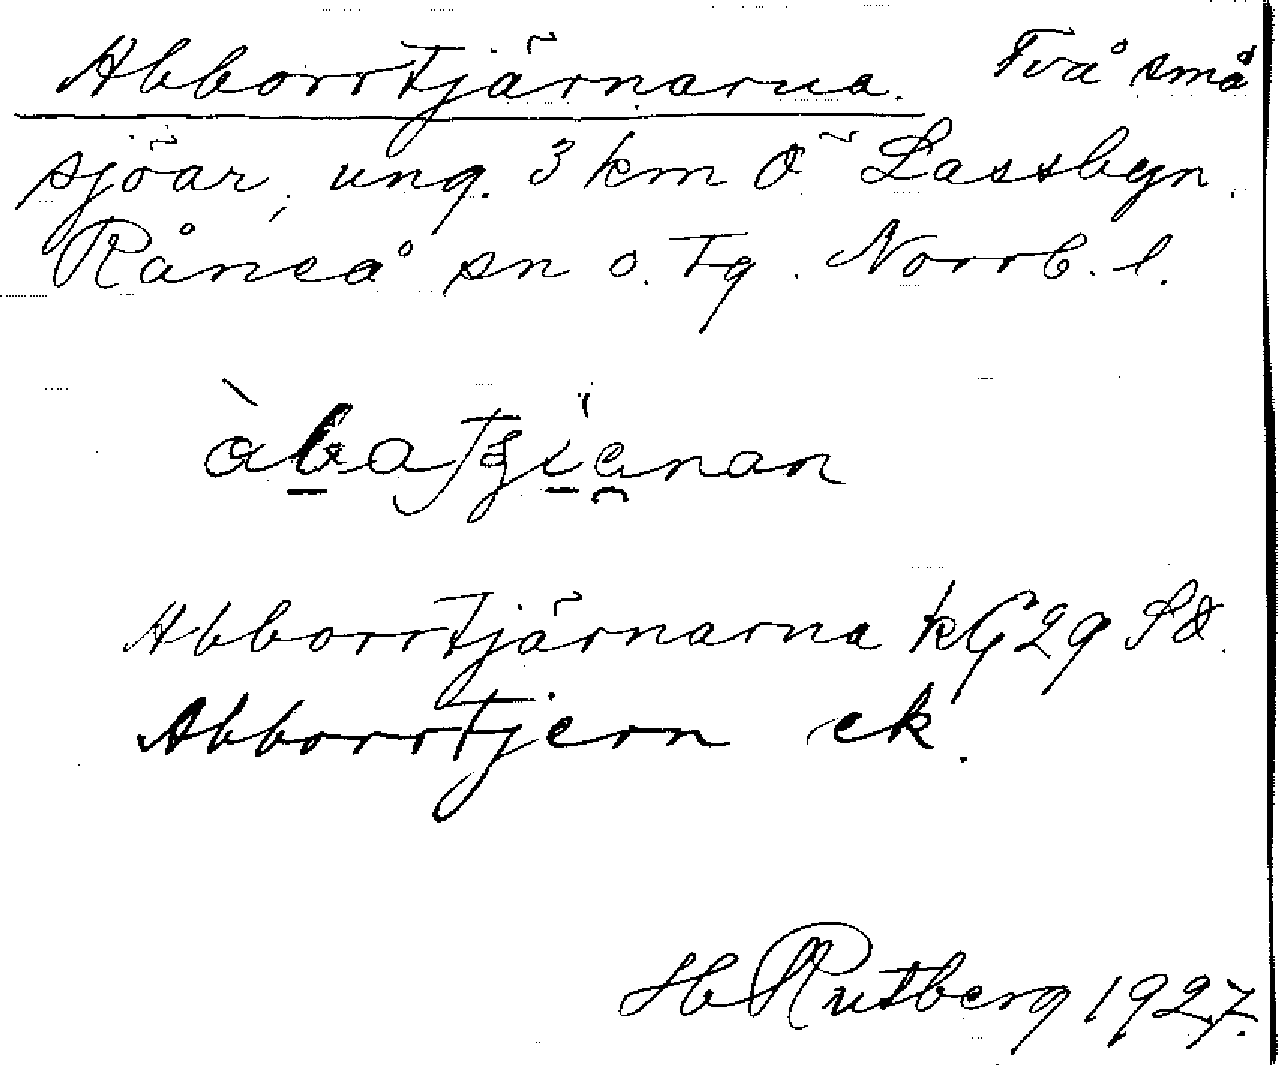 Abborrtjärnarna. Två små
sjöar, ung. 3 km Ö Lassbyn.
Råneå sn o. Tg. Norrb. l.
Abborrtjärnarna kG29 SÖ.
Abborrtjern ek.
H Rutberg 1927.